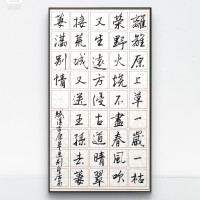 離離原上草一歲一枯
榮野火燒不盡春風吹
又生遠芳侵古道晴翠
接荒城又送王孫去萋
萋滿別情
賦得古原草送別